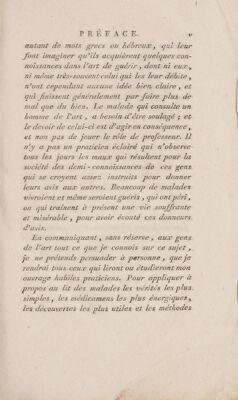 PRÉFACE. v
autant de mots grecs ou hébreux, qui leur
font imaginer qu'ils acquièrent quelques con-
noissances dans l'art de guérir, dont ni eux,
ni même très-souvent celui qui les leur débite,
n'ont cependant aucune idée bien claire, et
qui finissent généralement par faire plus de
mal que du bien. Le malade qui consulte un
homme de l'art, a besoin d'être soulagé ; et
le devoir de celui-ci est d'agir en conséquence,
et non pas de jouer le rôle de professeur. Il
n'y a pas un praticien éclairé qui n'observe
tous les jours les maux qui résultent pour la
société des demi-connoissances de ces gens
qui se croyent assez instruits pour donner
leurs avis aux autres. Beaucoup de malades
vivroient et même seroient guéris, qui ont péri,
ou qui traînent à présent une vie souffrante
et misérable, pour avoir écouté ces donneurs
d'avis.
En communiquant, sans réserve, aux gens
de l'art tout ce que je connois sur ce sujet,
je ne prétends persuader à personne, que je
rendrai tous ceux qui liront ou étudieront mon
ouvrage habiles praticiens. Pour appliquer à
propos au lit des malades les vérités les plus
simples, les médicamens les plus énergiques,
les découvertes les plus utiles et les méthodes